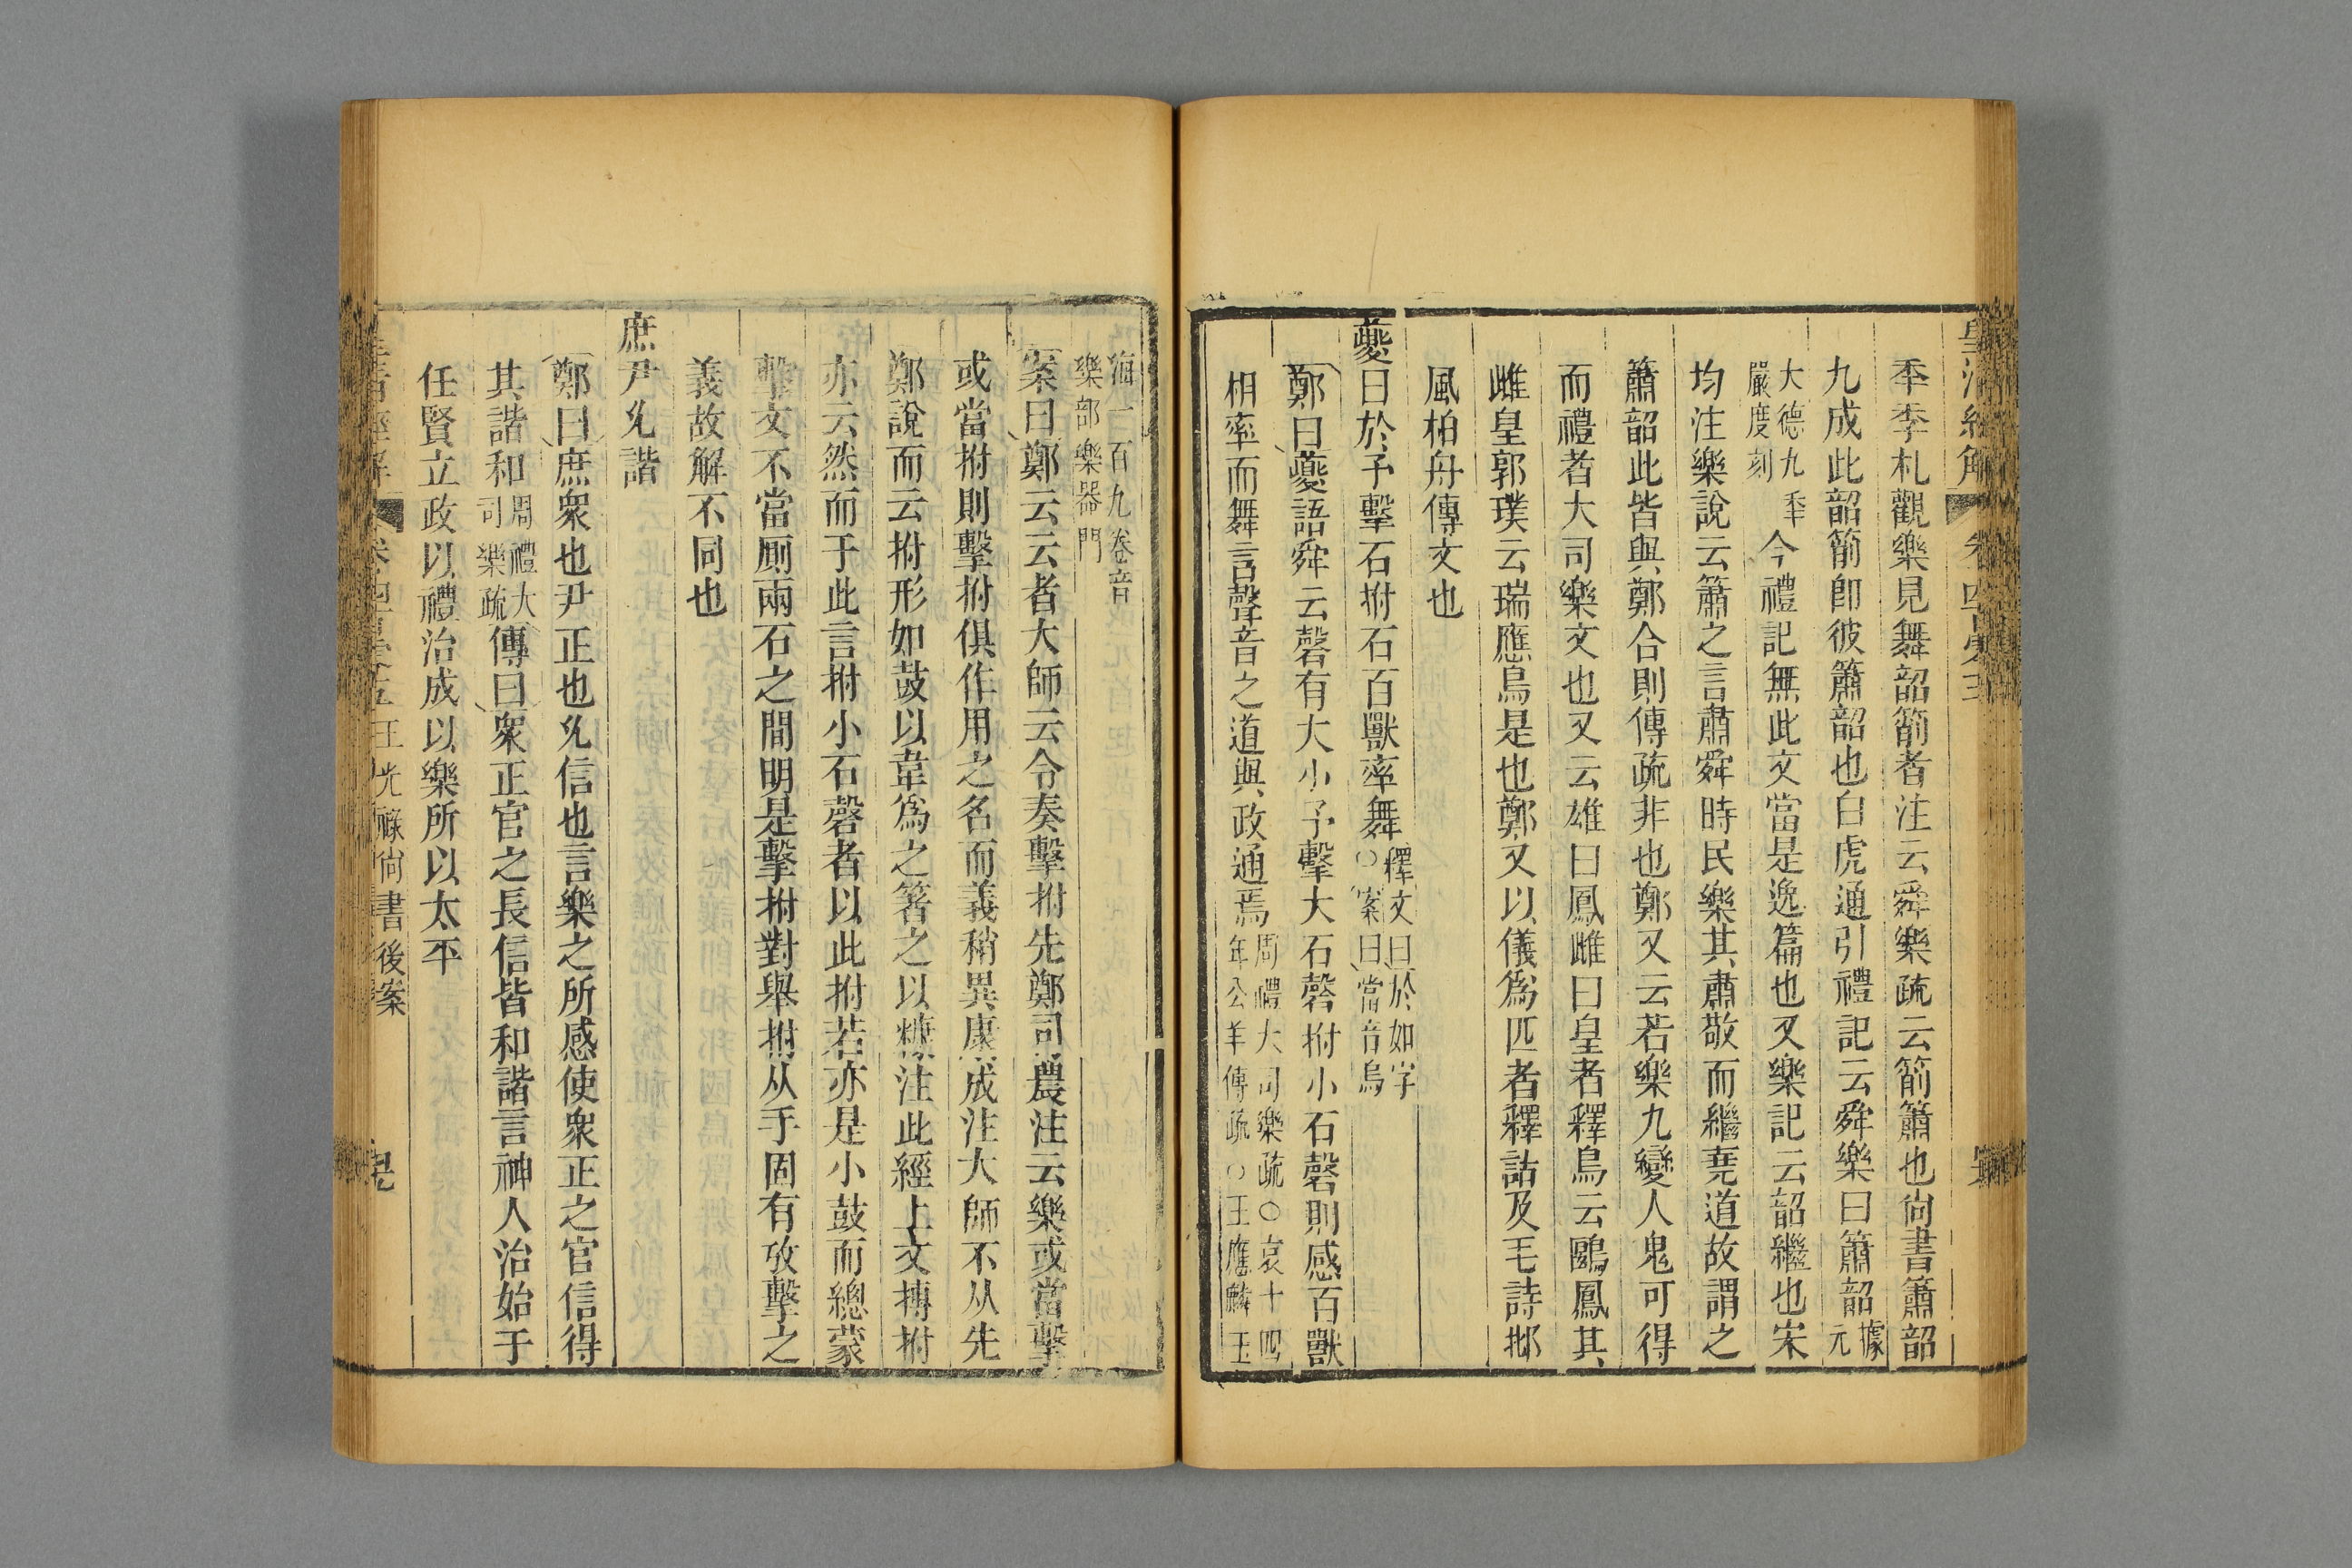 季季札觀樂見舞韶箾者注云舜樂疏云箾簫也尙書簫韶
九成此韶箾卽彼簫韶也白虎通引禮記云舜樂曰簫韶據元
大德九年嚴度刻今禮記無此文當是逸篇也又樂記云韶繼也宋
均注樂說云簫之言肅舜時民樂其肅敬而繼堯道故謂之
簫韶此皆與鄭合則傳疏非也鄭又云若樂九變人鬼可得
而禮者大司樂文也又云雄曰鳳雌曰皇者釋鳥云鶠鳳其
雌皇郭璞云瑞應鳥是也鄭又以儀爲匹者釋詁及毛詩邶
風柏舟傳文也
夔曰於予擊石拊石百獸率舞釋文曰於如字○案曰當音烏
鄭曰夔語舜云磬有大小予擊大石磬拊小石磬則感百獸
相率而舞言聲音之道與政通焉周禮大司樂疏○哀十四年公羊傳疏○王應麟玉
海一百九卷音樂部樂器門
案曰鄭云云者大師云令奏擊拊先鄭司農注云樂或當擊
或當拊則擊拊俱作用之名而義稍異康成注大師不从先
鄭說而云拊形如鼓以韋爲之箸之以穅注此經上文搏拊
亦云然而于此言拊小石磬者以此拊若亦是小鼓而總蒙
擊文不當廁兩石之間明是擊拊對舉拊从手固有攷擊之
義故解不同也
庶尹允諧
鄭曰庶衆也尹正也允信也言樂之所感使衆正之官信得
其諧和周禮大司樂疏傳曰衆正官之長信皆和諧言神人治始于
任賢立政以禮治成以樂所以太平
王光祿尙書後案